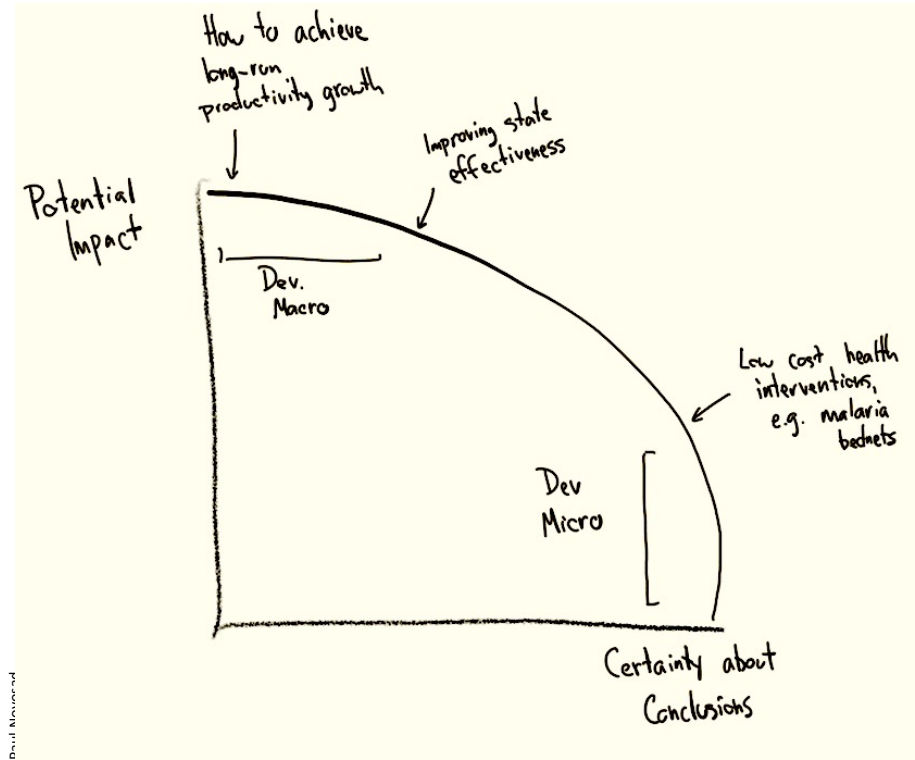 How to achieve
long-run
productivity growth
Improving state
effectiveness
Potential
Impact
Dev.
Macro
Low cost health
interventions,
e.g. malaria
bednets
Dev
Micro
Certainty about
Conclusions
Paul Novosad